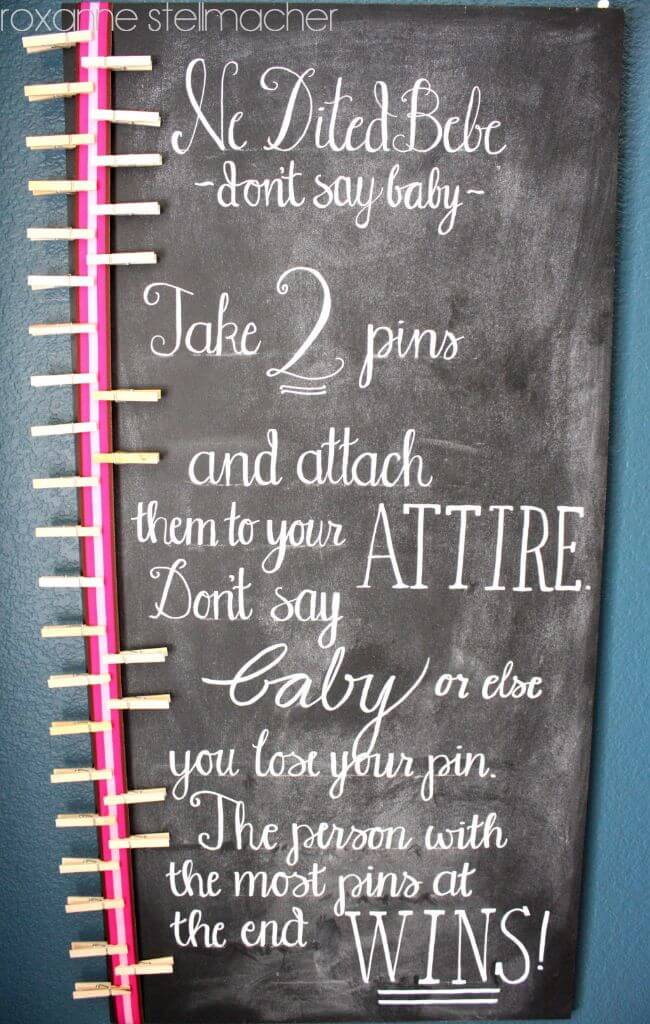 roxanne stellmacher
Ne Dited Bebe
~don't say baby~
Take 2 pins
and attach
them to your ATTIRE.
Don't say
baby or else
you lose your pin.
The person with
the most pins at
the end WINS!